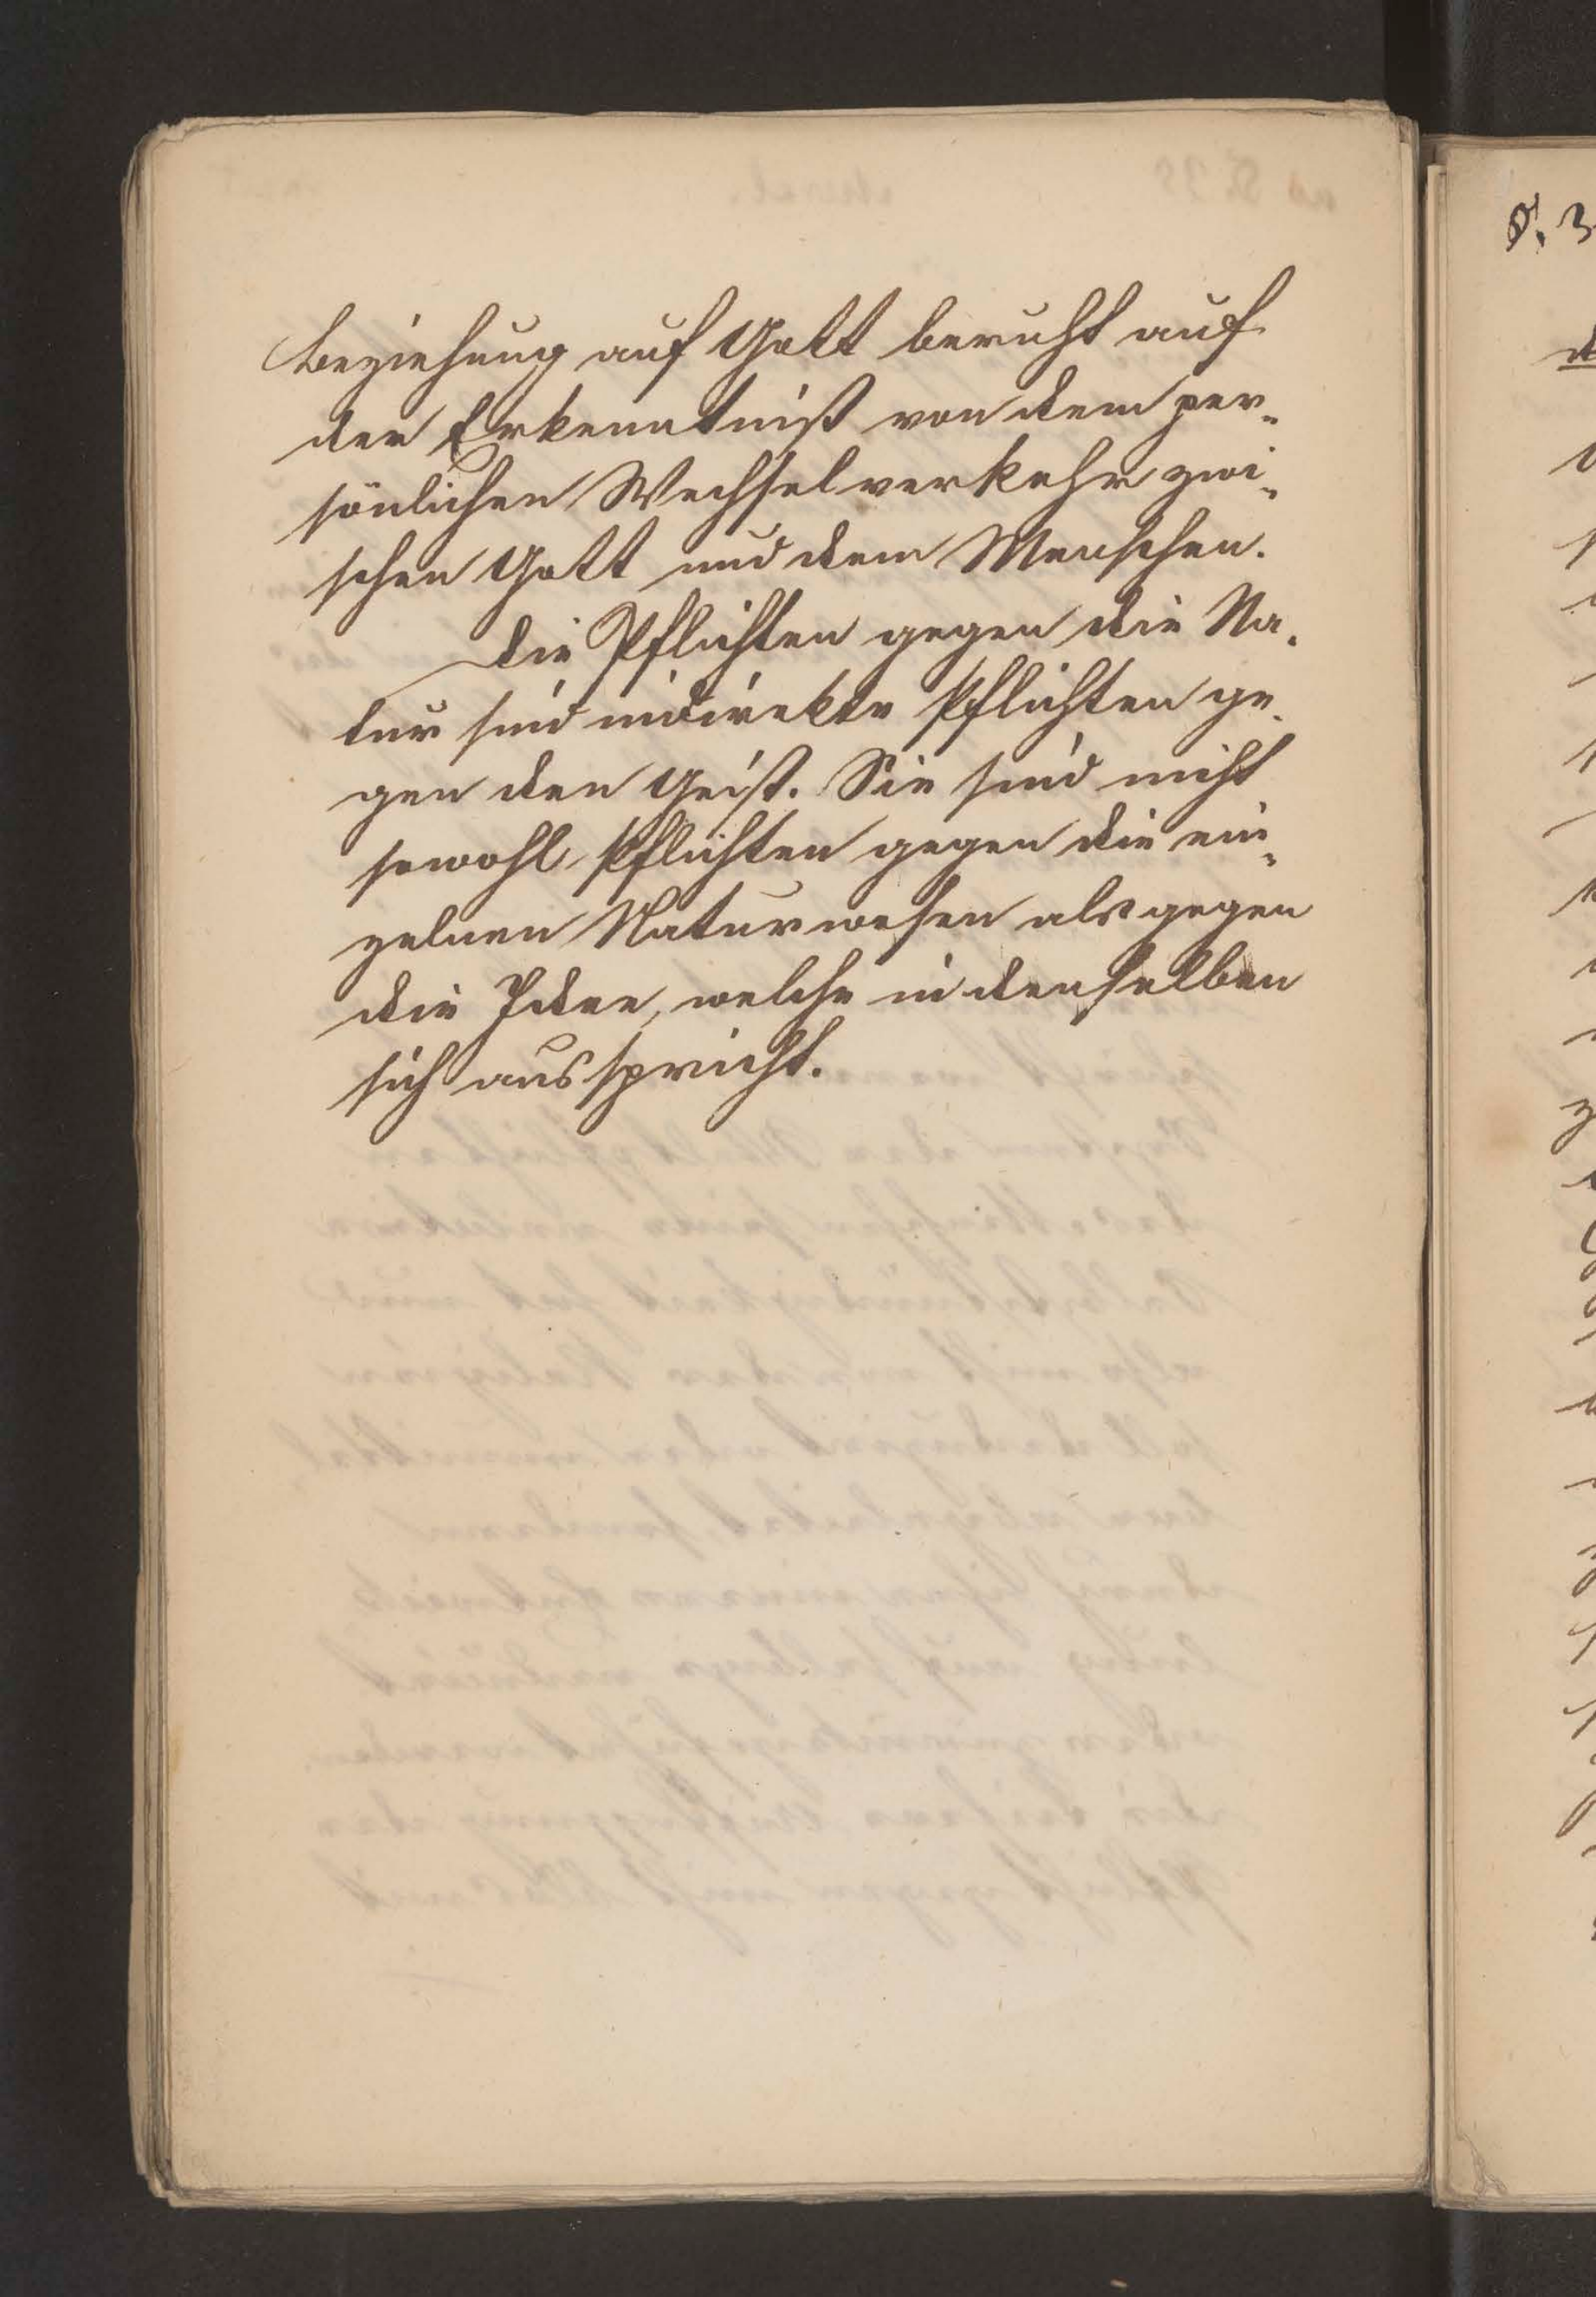 Beziehung auf Gott beruht auf
der Erkenntniß von dem per-
sönlichen Wechselverkehr zwi-
schen Gott und dem Menschen.
Die Pflichten gegen die Na-
tur sind indirekte Pflichten ge-
gen den Geist. Sie sind nicht
sowohl Pflichten gegen die ein-
zelnen Naturwesen als gegen
die Idee, welche in denselben
sich ausspricht.